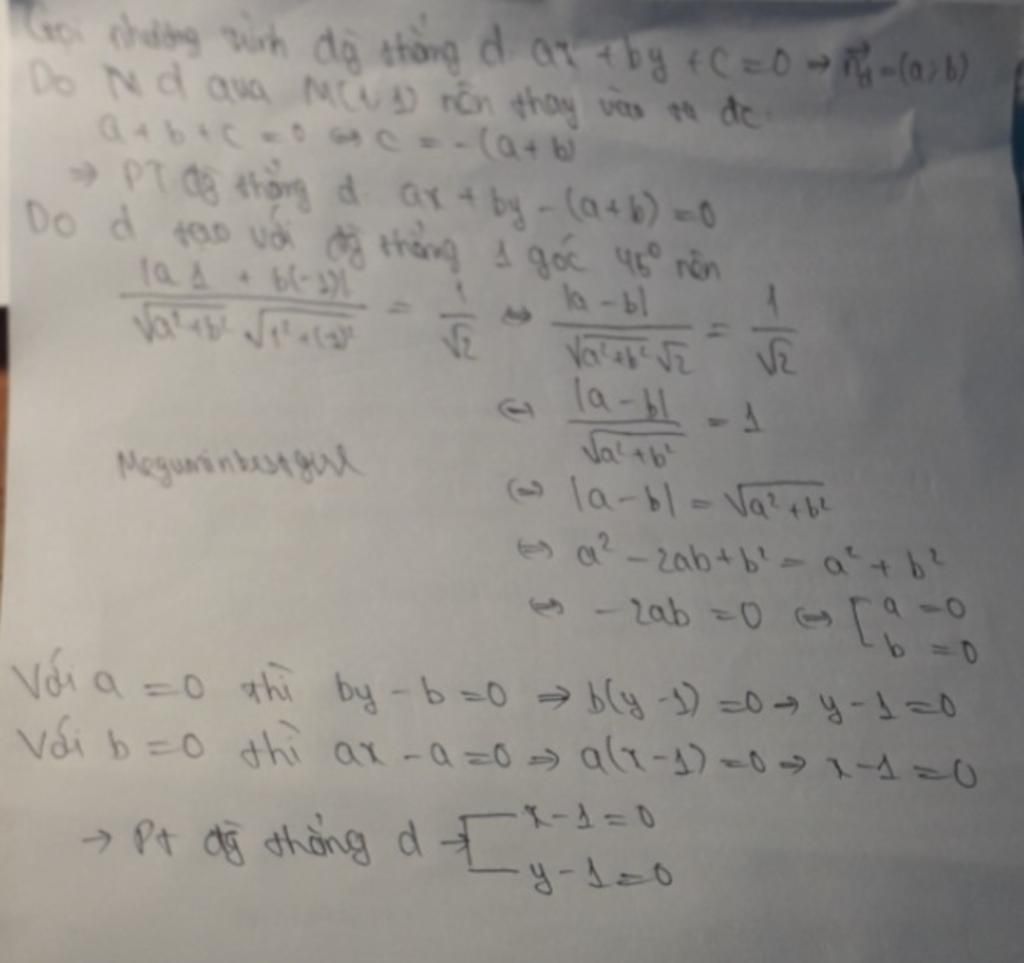 Gọi phương trình đg thẳng d ax + by + c = 0 → n⃗d = (a; b)
Do d qua M(1, 1) nên thay vào ta đc
a + b + c = 0 ⇔ c = -(a + b)
⇒ PT đg thẳng d ax + by - (a + b) = 0
Do d tạo với đg thẳng 1 góc 45° nên
|a 1 + b(-1)| / √a²+b² √1²+(-1)² = 1/√2 ⇔ |a - b| / √a²+b² √2 = 1/√2
⇔ |a - b| / √a²+b² = 1
Meguminbestgirl
⇔ |a - b| = √a²+b²
⇔ a² - 2ab + b² = a² + b²
⇔ -2ab = 0 ⇔ [ a = 0
b = 0
Với a = 0 thì by - b = 0 ⇒ b(y - 1) = 0 → y - 1 = 0
Với b = 0 thì ax - a = 0 ⇒ a(x - 1) = 0 → x - 1 = 0
→ Pt đg thẳng d → [ x - 1 = 0
y - 1 = 0